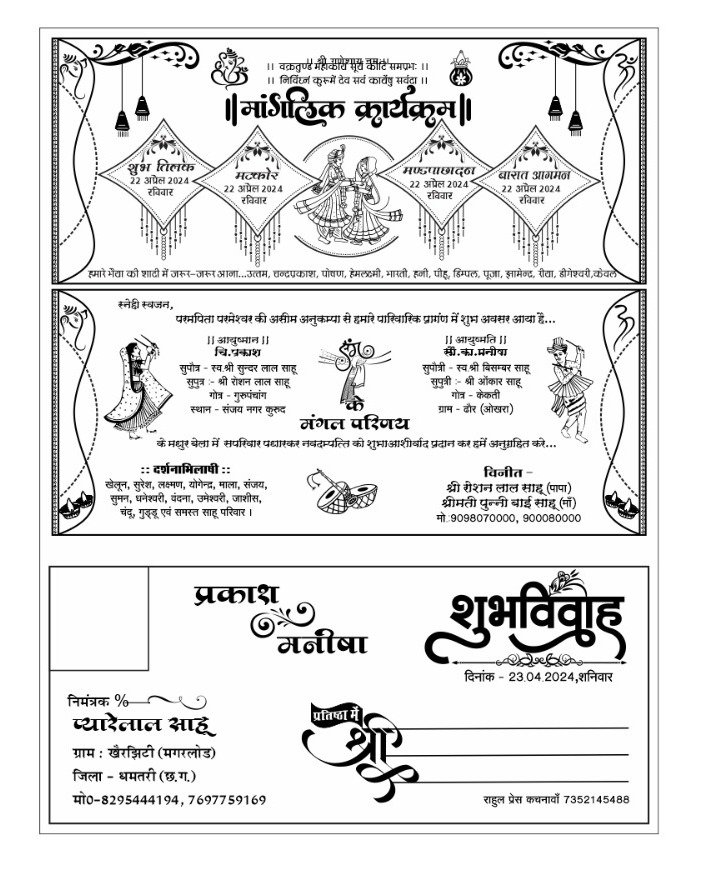 ।। श्री गणेशाय नमः ।।
।। वक्रतुण्ड महाकाय सूर्य कोटि समप्रभः ।।
।। निर्विघ्नं कुरूमें देव सर्व कार्येषु सर्वदा ।।
||मांगलिक कार्यक्रम||
शुभ तिलक
22 अप्रेल 2024
रविवार
मटकोर
22 अप्रेल 2024
रविवार
मण्डपाछादन
22 अप्रेल 2024
रविवार
बारात आगमन
22 अप्रेल 2024
रविवार
हमारे भैया की शादी में जरूर-जरूर आना...उत्तम, चन्द्रप्रकाश, पोषण, हेमलक्ष्मी, भारती, हनी, पीहू, डिम्पल, पूजा, ज्ञामेन्द्र, रीवा, डीगेश्वरी,केवल
स्नेही स्वजन,
परमपिता परमेश्वर की असीम अनुकम्पा से हमारे पारिवारिक प्रागंण में शुभ अवसर आया है...
|| आयुष्मान ||
चि.प्रकाश
सुपौत्र - स्व.श्री सुन्दर लाल साहू
सुपुत्र :- श्री रोशन लाल साहू
गोत्र - गुरुपंचांग
स्थान - संजय नगर कुरुद
संग
|| आयुष्मति ||
सौ.का.मनीषा
सुपौत्री - स्व.श्री बिसम्बर साहू
सुपुत्री :- श्री ओंकार साहू
गोत्र - केकती
ग्राम - ढौर (ओखरा)
के
मंगल परिणय
के मधुर बेला में सपरिवार पधारकर नवदम्पत्ति को शुभाआशीर्वाद प्रदान कर हमें अनुग्रहित करे...
:: दर्शनाभिलाषी ::
खेलून, सुरेश, लक्ष्मण, योगेन्द्र, माला, संजय,
सुमन, धनेश्वरी, वंदना, उमेश्वरी, जाशीस,
चंदू, गुड्डू एवं समस्त साहू परिवार ।
विनीत -
श्री रोशन लाल साहू (पापा)
श्रीमती पुन्नी बाई साहू (माँ)
मो.9098070000, 900080000
प्रकाश
मनीषा
शुभविवाह
दिनांक - 23.04.2024,शनिवार
निमंत्रक %
प्यारेलाल साहू
ग्राम : खैरझिटी (मगरलोड)
जिला - धमतरी (छ.ग.)
मो0-8295444194, 7697759169
प्रतिष्ठा में
श्री
राहुल प्रेस कचनावाँ 7352145488